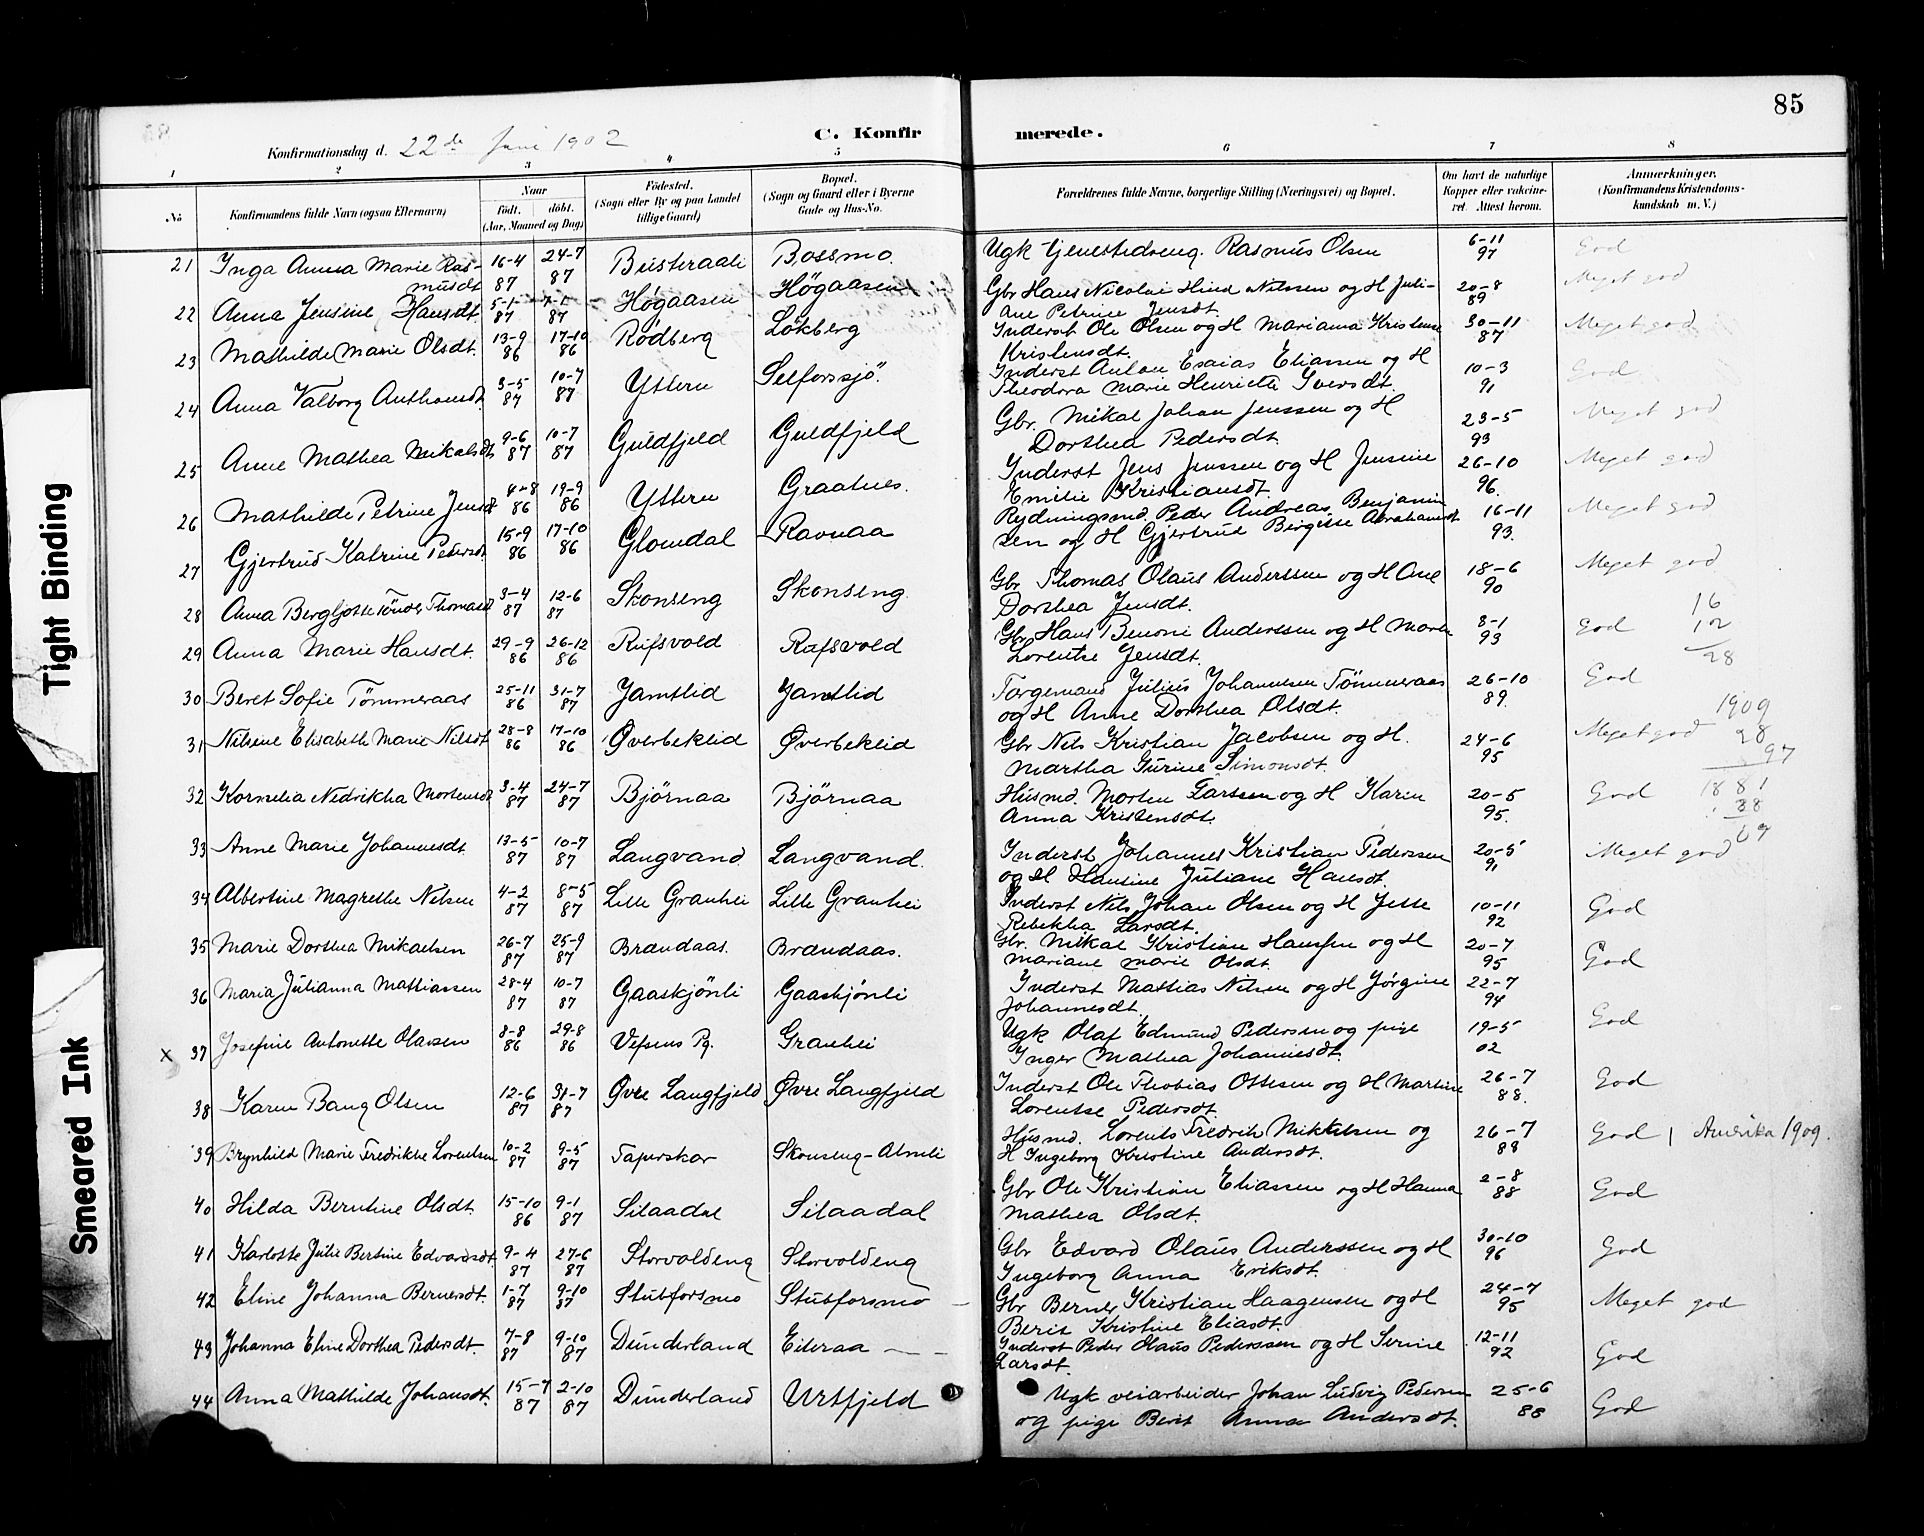 85
Konfirmationsdag d. 22de Juni 1902
C. Konfirmerede.
1 2 3 4 5 6 7 8
No
Konfirmandens fulde Navn (ogsaa Efternavn)
Naar
født. døbt.
(Aar, Maaned og Dag)
Fødested.
(Sogn eller By og paa Landet
tillige Gaard)
Bopæl.
(Sogn og Gaard eller i Byerne
Gade og Hus-No.
Forældrenes fulde Navne, borgerlige Stilling (Næringsvei) og Bopæl.
Om havt de naturlige
Kopper eller vakcine-
ret. Attest herom.
Anmærkninger.
(Konfirmandens Kristendoms-
kundskab m. V.)
21 Inga Anna Marie Ras-musdt 16-4 87 24-7 87 Bossmo. Ugk tjenestedreng. Rasmus Olsen 6-11 97 God
22 Anna Jensine Hansdt. 5-1 87 87 Høgaasen Høgaasen Gbr Hans Nicolai Hind Nilssen og H Juli-ane Petrine Jensdt. 20-8 89 Meget god
23 Mathilde Marie Olsdt. 13-9 86 17-10 86 Rødberg Løkberg Inderst Ole Olsen og H Mariana Kristense Kristensdt. 30-11 87 Meget god
24 Anna Valborg Anthonsdt. 3-5 87 10-7 87 Ytteru Selforssjø. Inderst Anton Esaias Eliassen og H Theodora Marie Henriette Iversdt. 10-3 91 God
25 Anne Mathea Mikalsdt 9-6 87 10-7 87 Guldfjeld Guldfjeld Gbr. Mikal Johan Jenssen og H Dorthea Pedersdt. 23-5 93 Meget god
26 Mathilde Petrine Jensdt 4-8 86 19-9 86 Ytteru Graatnes. Inderst Jens Jenssen og H Jensine Emilie Kristiansdt. 26-10 96. Meget god
27 Gjertrud Katrine Pedersdt. 15-9 86 17-10 86 Glomdal Ravnaa Rydningsmd. Peder Andreas Benjamin sen og H Gjertrud Bergitte Abrahamsdt 16-11 93. Meget god
28 Anna Bergljotte Tønder Thomasdt 3-4 87 12-6 87 Skonseng Skonseng. Gbr Thomas Olaus Anderssen og H Ane Dorthea Jensdt. 18-6 90 Meget god
29 Anna Marie Hansdt. 29-9 86 26-12 86 Rufsvold Rufsvold Gbr Hans Benoni Anderssen og H Maren Lorentse Jensdt. 8-1 93 God
16
12
28
30 Beret Sofie Tømmeraas 25-11 86 31-7 87 Jamtlid Jamtlid Torgemand Julius Johannesen Tømmeraas og H Anne Dorthea Olsdt. 26-10 89. God
31 Nilsine Elisabeth Marie Nilsdt 28-8 86 17-10 86 Øverbeklid Øverbeklid Gbr Nils Kristian Jacobsen og H. Martha Gurine Simonsdt. 24-6 95 Meget god
1909
28
97
1881
88
69
32 Kornelia Nedrikka Mortensdt 3-4 87 24-7 87 Bjørnaa Bjørnaa Husmd. Morten Larssen og H Karen Anna Kristensdt. 20-5 95. God
33 Anne Marie Johannesdt. 13-5 87 10-7 87 Langvand. Langvand. Inderst Johannes Kristian Pederssen og H Hansine Juliane Hansdt. 20-5 91 Meget god
34 Albertine Magrethe Nilsen 4-2 87 8-5 87 Lille Granhei Lille Granhei Inderst Nils Johan Olsen og H Jette Rebekka Larsdt. 10-11 92 God
35 Marie Dorthea Mikaelsen 26-7 87 25-9 87 Brandaas. Brandaas. Gbr. Mikal Kristian Hanssen og H Mariane Marie Olsdt. 20-7 95 God
36 Maria Julianna Mattiassen 28-4 87 10-7 87 Gaaskjønli Gaaskjønli Inderst Mattias Nilsen og H Jørgine Johannesdt. 22-7 94 God
x 37 Josefine Antonette Olavsen 8-8 86 29-8 86 Vefsens Pg. Granhei Ugk Olaf Edmund Pedersen og pige Inger Mathea Johannesdt. 19-5 02
38 Karen Bang Olsen 12-6 87 31-7 87 Øvre Langfjeld Øvre Langfjeld Inderst Ole Thobias Ottesen og H Martine Lorentse Pedersdt. 26-7 88. God
39 Brynhild Marie Fredrikke Lorentsen 10-2 87 9-5 87 Taperskar Skonseng-Almli Husmd. Lorents Fredrik Mikkelsen og H Ingeborg Kristine Andersdt. 26-7 88 God Amerika 1909.
40 Hilda Berntine Olsdt. 15-10 86 9-1 87 Silaadal Silaadal Gbr Ole Kristian Eliassen og H Hanna Mathea Olsdt. 2-8 88 God
41 Karlotte Julie Bertine Edvardsdt. 9-4 87 27-6 87 Storvoldeng Storvoldeng Gbr Edvard Olaus Anderssen og H Ingeborg Anna Eriksdt. 30-10 96 God
42 Eline Johanna Bernersdt. 1-7 87 9-10 87 Stubforsmo Stubforsmo Gbr Berner Kristian Haagensen og H Berit Kristine Eliasdt. 24-7 95 Meget god
43 Johanna Eline Dorthea Pedersdt. 7-8 87 9-10 87 Dunderland Eiteraa Inderst Peder Olaus Pederssen og H Serine Larsdt. 12-11 92 God
44 Anna Mathilde Johansdt. 15-7 87 2-10 87 Dunderland Urtfjeld Ugk veiarbeider Johan Ludvig Pedersen og pige Berit Anna Andersdt. 25-6 88 God
Tight Binding
Smeared Ink